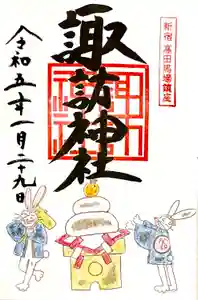 新宿 高田馬場鎮座
諏訪神社
令和五年一月二十九日